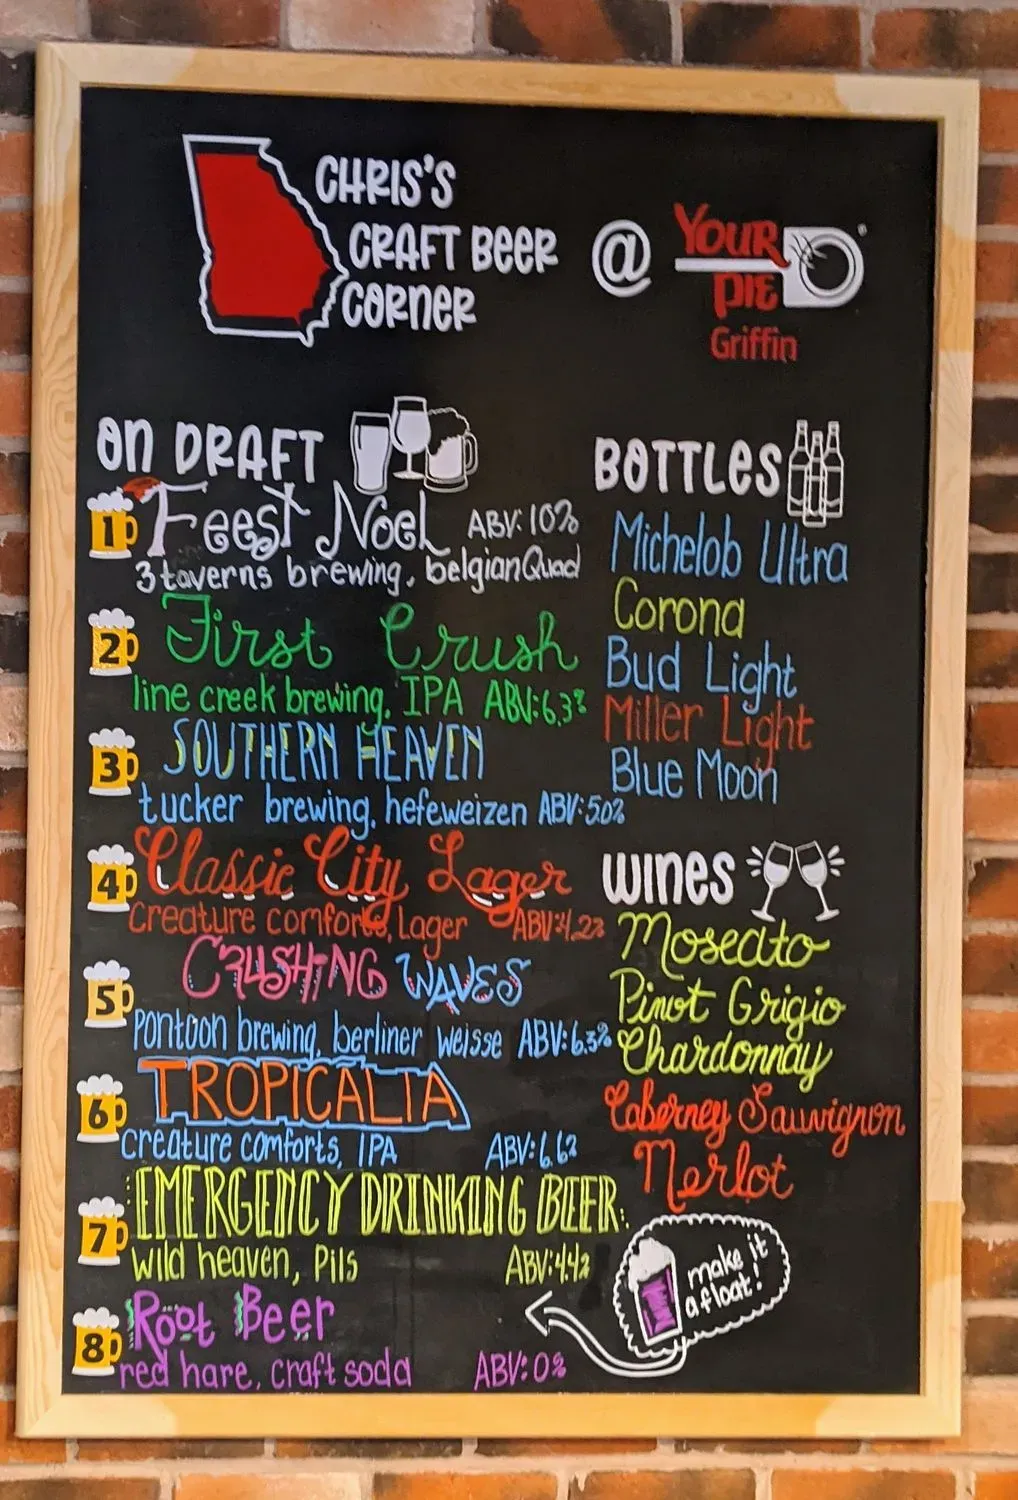 CHRIS'S
CRAFT BEER
CORNER
@
YOUR
PIE
Griffin
ON DRAFT
1 Feest Noel ABV: 10%
3 taverns brewing, belgian Quad
2 First Crush
line creek brewing, IPA ABV: 6.3%
3 SOUTHERN HEAVEN
tucker brewing, hefeweizen ABV: 5.0%
4 Classic City Lager
Creature comforts, Lager ABV: 4.2%
5 CRUSHING WAVES
pontoon brewing, berliner weisse ABV: 6.3%
6 TROPICALIA
creature comforts, IPA ABV: 6.6%
7 EMERGENCY DRINKING BEER
wild heaven, Pils ABV: 4.4%
8 Root Beer
red hare, craft soda ABV: 0%
BOTTLES
Michelob Ultra
Corona
Bud Light
Miller Light
Blue Moon
WINES
Moscato
Pinot Grigio
Chardonnay
Caberney Sauvignon
Merlot
make it
a float!